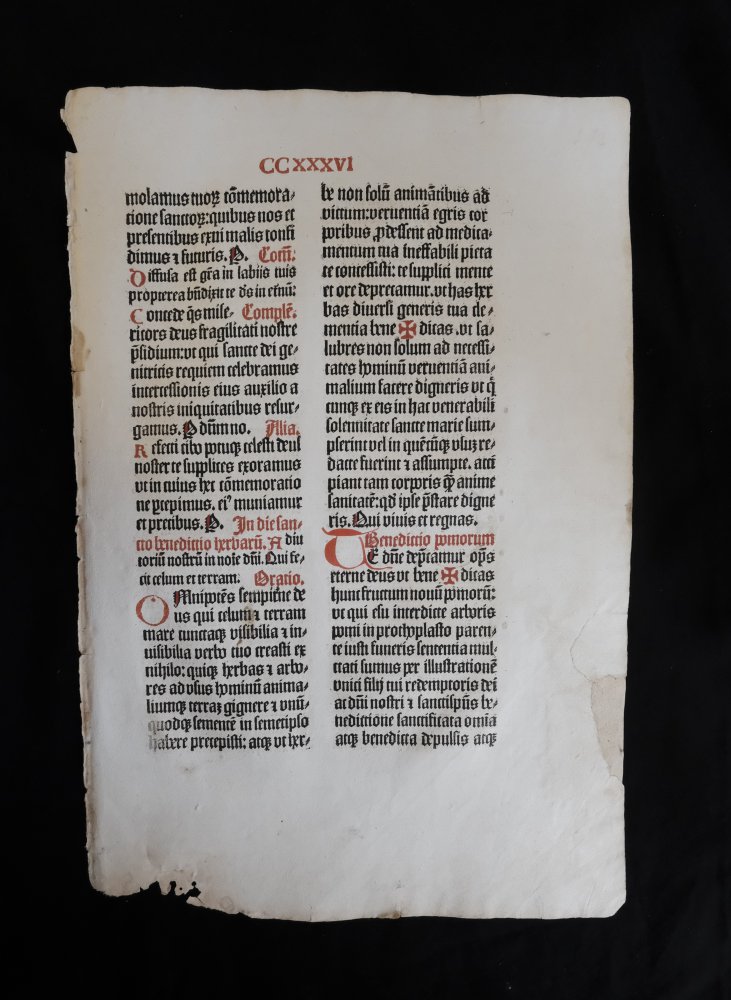 CCXXXVI
molamus tuoꝝ cōmemora⸗
tione sanctoꝝ:quibus nos et
presentibus exui malis confi
dimus ⁊ futuris. P. Com̄.
Diffusa est gr̄a in labiis tuis
propterea bn̄dixit te ds̄ in etn̄ū:
Concede q̄s mise⸗ Complē.
ricors deus fragilitati nostre
p̄sidium:vt qui sancte dei ge⸗
nitricis requiem celebramus
intercessionis eius auxilio a
nostris iniquitatibus resur⸗
gamus. P dn̄m no. Alia.
Refecti cibo potuqꝫ celesti deus
noster te supplices exoramus
vt in cuius hec cōmemoratio
ne ꝑcepimus. ei⁹ muniamur
et precibus. P. In die san⸗
cto benedictio herbarū. Adiu
toriū nostrū in noīe dn̄i. Qui fe⸗
cit celum et terram. Oratio.
OMnipotēs sempitne de
us qui celum ⁊ terram
mare cunctaqꝫ visibilia ⁊ in⸗
uisibilia verbo tuo creasti ex
nihilo: quiqꝫ herbas ⁊ arbo⸗
res ad vsus hominū anima⸗
liumqꝫ terraꝫ gignere ⁊ vnū⸗
quodqꝫ sementē in semetipso
habere precepisti: atqꝫ vt her⸗
be non solū animātibus ad
victum:veruentiā egris cor
poribus ꝓdessent ad medica⸗
mentum tua ineffabili pieta
te concessisti: te supplici mente
et ore deprecamur. vt has her
bas diuersi generis tua cle⸗
mentia bene ✠ dicas. vt sa⸗
lubres non solum ad necessi⸗
tates hominū veruentiā ani⸗
malium facere digneris vt q̄
cunqꝫ ex eis in hac venerabili
solennitate sancte marie sum⸗
pserint vel in quēcūqꝫ vsuꝫ re⸗
dacte fuerint ⁊ assumpte. acci
piant tam corporis qꝫ̄ anime
sanitatē:qd̄ ipse p̄stare digne
ris. Qui viuis et regnas.
Benedictio pomorum
TE dn̄e dep̄camur op̄s
eterne deus vt bene ✠ dicas
hunc fructum nouū pomorū:
vt qui esu interdicte arboris
pomi in prothoplasto paren⸗
te iusti funeris sententia mul⸗
ctati sumus per illustrationē
vnici filij tui redemptoris dei
ac dn̄i nostri ⁊ sanctispn̄s be⸗
nedictione sanctificata omīa
atqꝫ benedicta depulsis atqꝫ